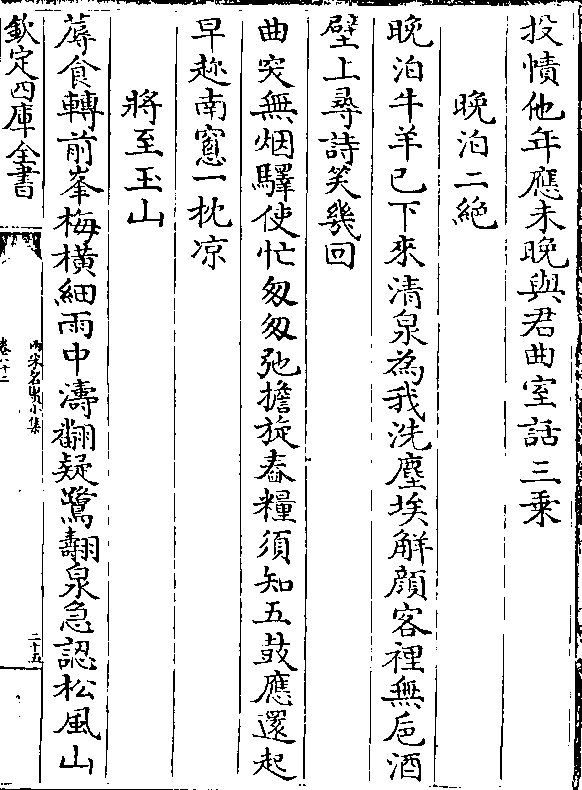 投憒他年應未晚與君曲室話三乗
晚泊二絶
晚泊牛羊已下來清泉為我洗塵埃解顔客裡無巵酒
壁上尋詩笑幾回
曲突無烟驛使忙匆匆弛擔旋舂糧須知五鼓應還起
早趂南窻一枕凉
將至玉山
蓐食轉前峯梅橫細雨中濤翻疑鷺翿泉急認松風山
欽定四庫全書
兩宋名賢小集
二十五